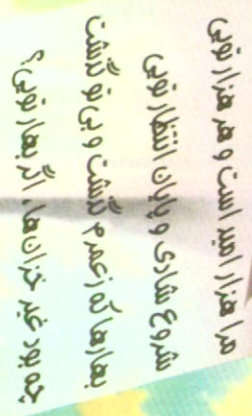 مرا هزار امید است و هر هزار تویی
شروع شادی و پایان انتظار تویی
بهارها که ز عمرم گذشت و بی تو گذشت
چه بود غیر خزان ها، اگر بهار تویی؟